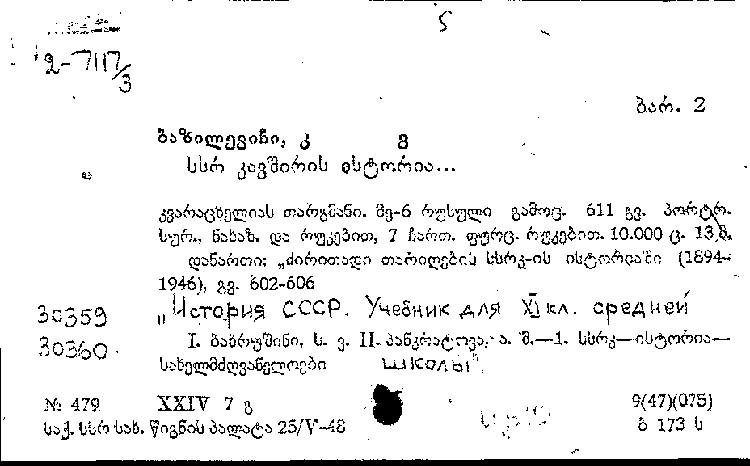 5
2-7117/3
ბარ. 2
ბაზილევიჩი, კ ვ
სსრ კავშირის ისტორია...
კვარაცხელიას თარგმანი. მე-6 რუსული გამოც. 611 გვ. პორტრ.
სურ., ნახაზ. და რუკებით, 7 ჩართ. ფურც. რუკებით. 10.000 ც. 13 მ.
დანართი: „ძირითადი თარიღების სსრკ-ის ისტორიაში (1894-
1946), გვ. 602-606
30359 „История СССР. Учебник для XI кл. средней
30360 I. ბახრუშინი, ს. ვ. II. პანკრატოვა, ა. მ.—1. სსრკ—ისტორია—
სახელმძღვანელოები школы".
№ 479 XXIV 7 გ 9(47)(075)
საქ. სსრ სახ. წიგნის პალატა 25/V-48 ბ 173 ს